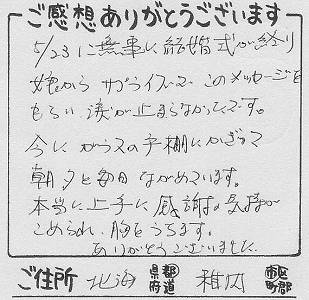 ご感想ありがとうございます
5/23に無事に結婚式が終り
娘から サプライズで このメッセージを
もらい 涙が止まらなかったです。
今は ガラスの戸棚にかざって
朝夕と毎日 ながめています。
本当に上手に 感謝の気持が
こめられ、胸をうちます。
ありがとうございました。
ご住所 北海 都道府県 稚内 市区町郡